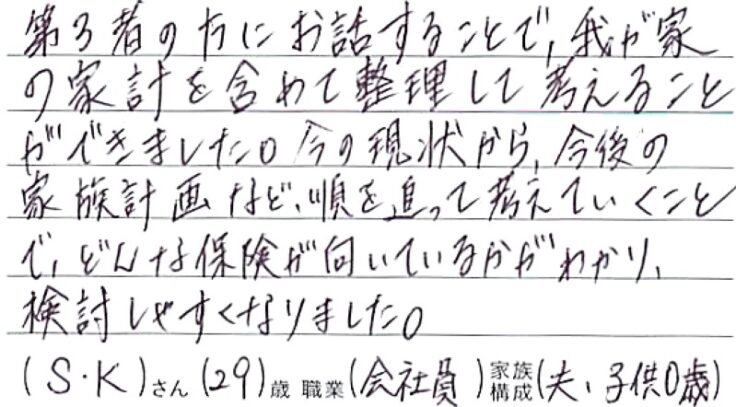 第3者の方にお話することで、我が家
の家計を含めて整理して考えること
ができました。今の現状から、今後の
家族計画など、順を追って考えていくこと
で、どんな保険が向いているかがわかり、
検討しやすくなりました。
(S・K)さん(29)歳 職業(会社員)家族構成(夫、子供0歳)